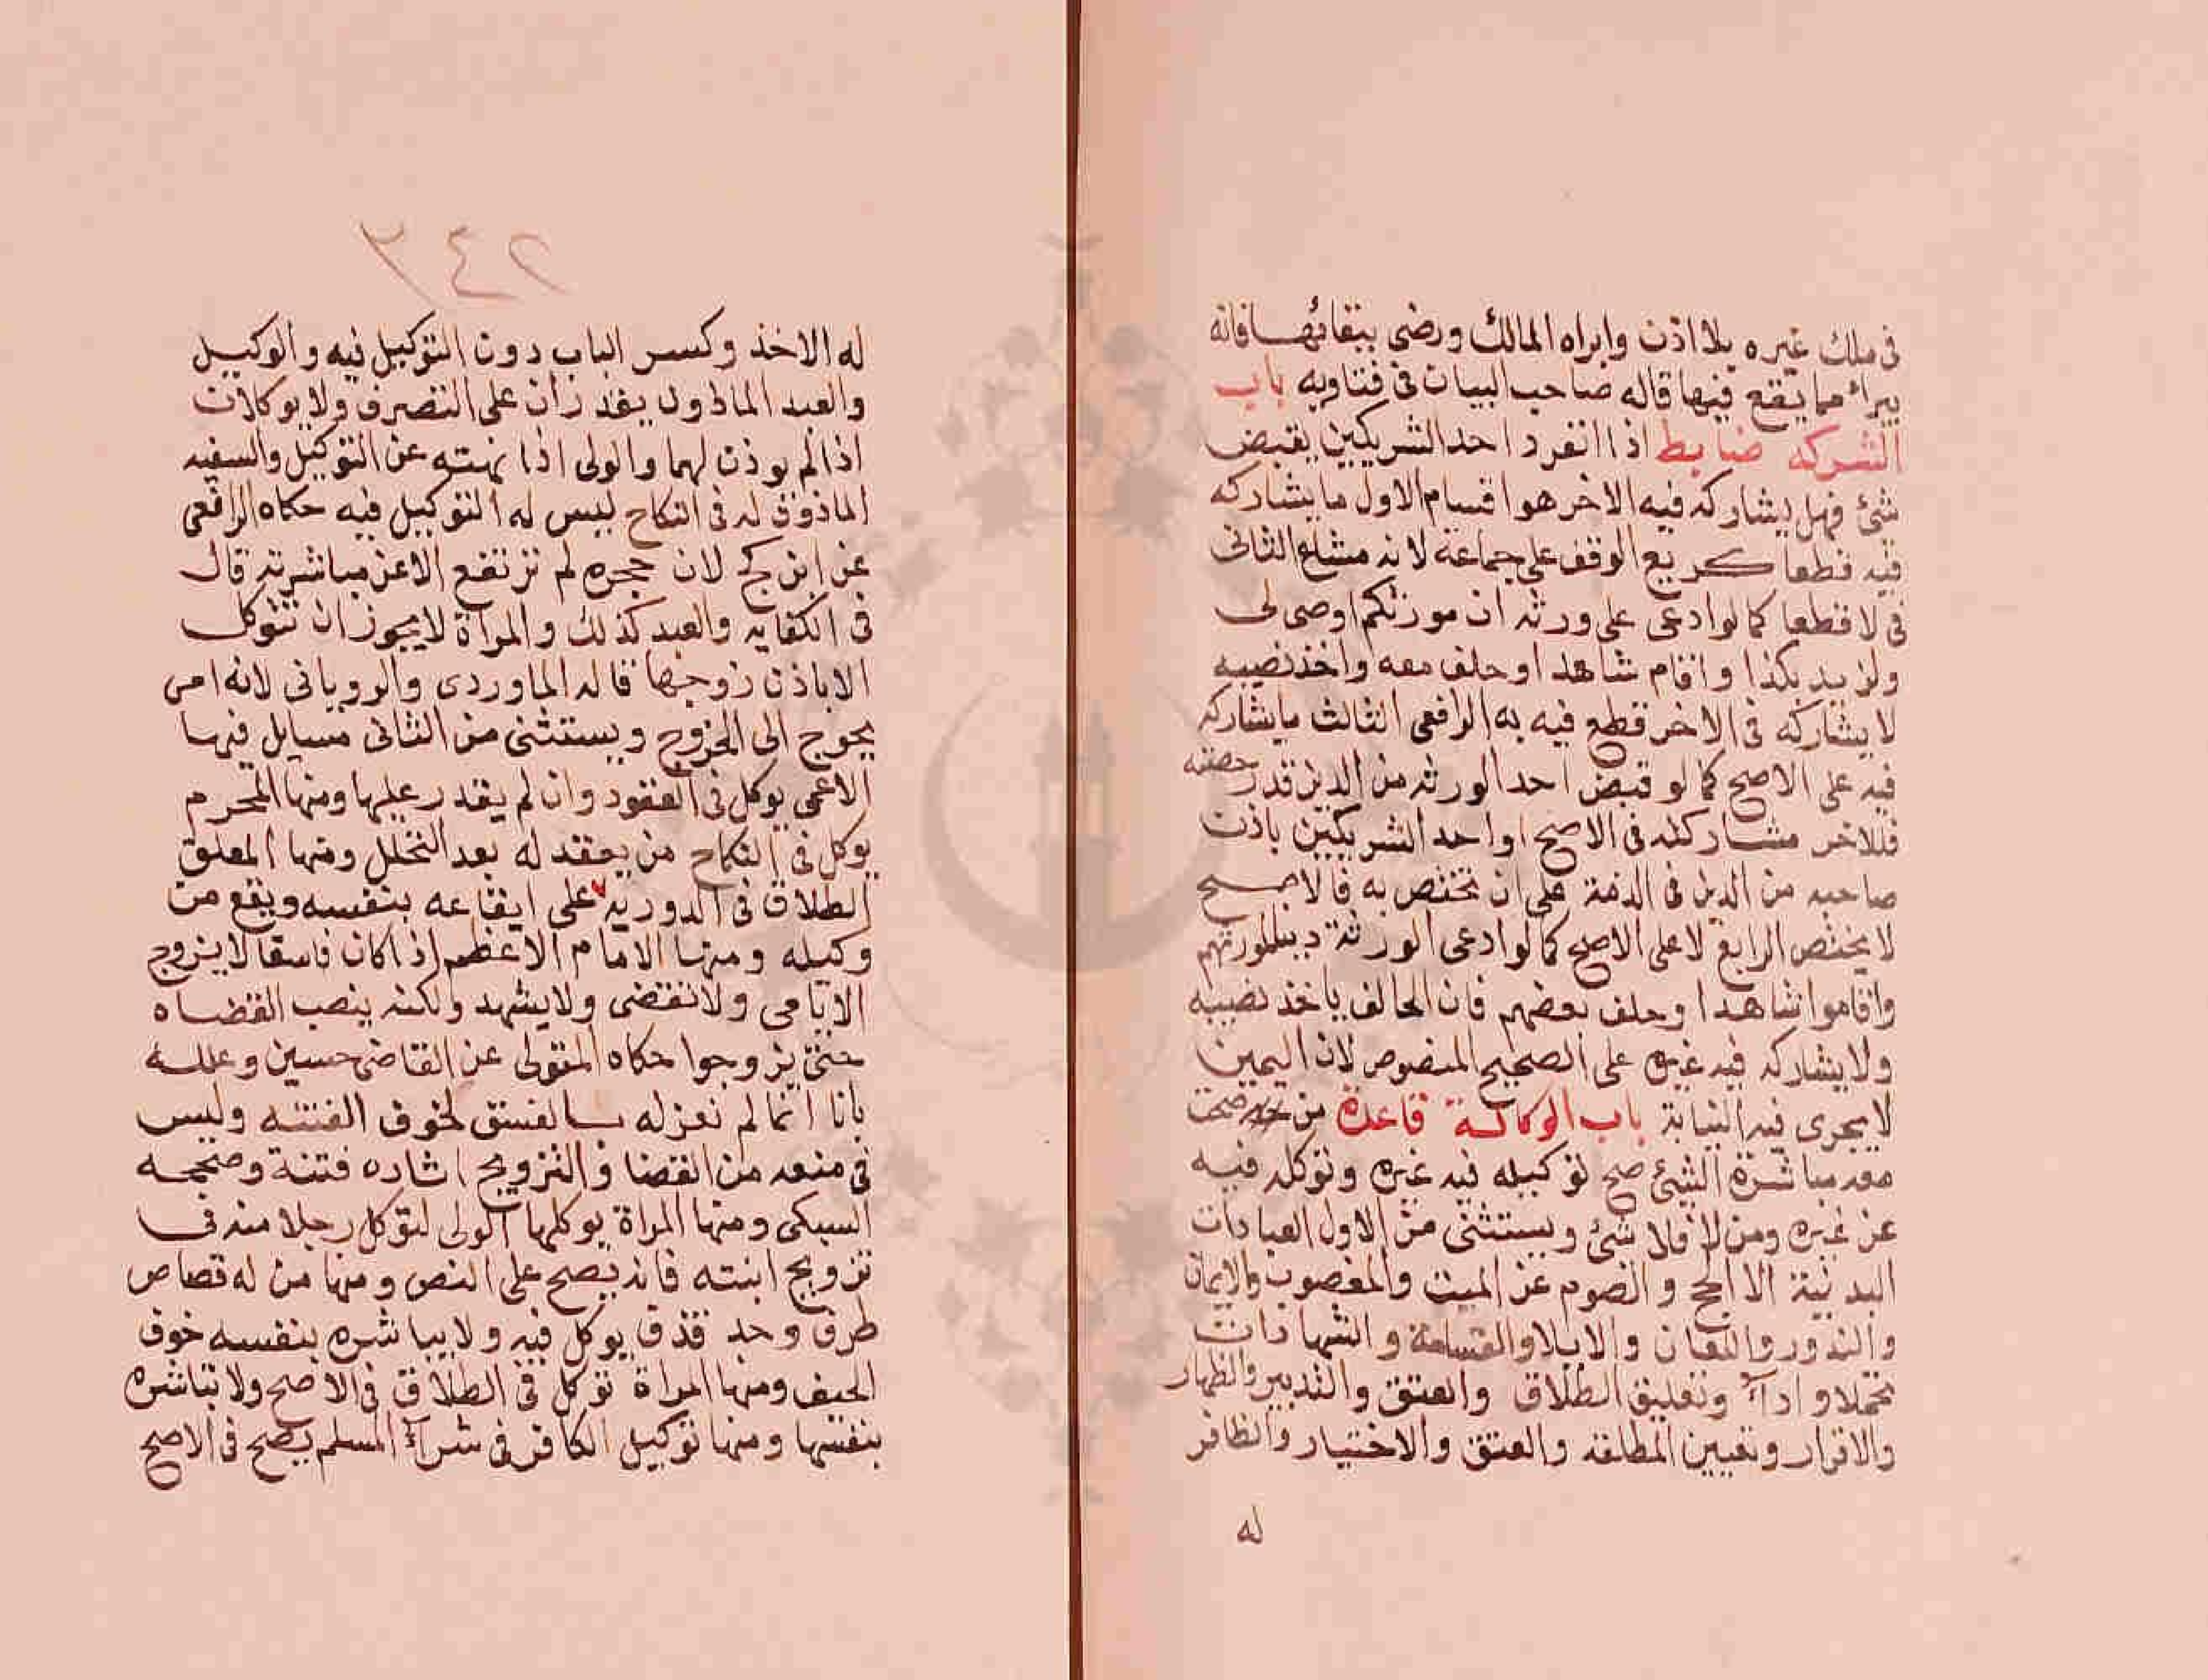 في ملك غيره بلا اذن وابراه المالك ورضي ببقائها فانه
يبراء مما يقع فيها قاله صاحب البيان في فتاويه باب
الشركه ضابط اذا انفرد احد الشريكين بقبض
شئ فهل يشاركه فيه الاخر هو اقسام الاول ما يشاركه
فيه قطعا كريع الوقف على جماعة لانه مشاع الثاني
في لا قطعا كما لو ادعى على ورثه ان مورثكم اوصى لى
ولزيد بكذا واقام شاهدا وحلف معه واخذ نصيبه
لا يشاركه في الاخر قطع فيه به الرافعي الثالث ما يشاركه
فيه على الاصح كما لو قبض احد الورثه من الدين قدر حصته
فللاخر مشاركته في الاصح او احد الشريكين باذن
صاحبه من الدين في الذمة على ان تختص به فالاصح
لا يختص الرابع لا على الاصح كما لو ادعى الورثة دينا لمورثهم
واقاموا شاهدا وحلف بعضهم فان الحالف ياخذ نصيبه
ولا يشاركه فيه غيره على الصحيح المنصوص لان اليمين
لا يجرى فيه النيابة باب الوكالة قاعدة من صحت
معه مباشرة الشئ صح توكيله فيه غيره وتوكله فيه
عن غيره ومن لا فلا شئ ويستثنى من الاول العبادات
البدنية الا الحج والصوم عن الميت والمغصوب والايمان
والنذور واللعان والايلا والقسامة والشهادات
تحملا و اداء وتعليق الطلاق والعتق والتدبير والظهار
والاقرار وتعيين المطلقه والعتق والاختيار والظافر
له
٢٤٢
له الاخذ وكسر الباب دون التوكيل فيه والوكيل
والعبد الماذون يقدران على التصرف ولا يوكلان
اذا لم يوذن لهما والولى اذا نهته عن التوكيل والسفيه
الماذون له في النكاح ليس له التوكيل فيه حكاه الرافعي
عن ابن كج لان حجره لم يرتفع الا عن مباشرته قال
في الكفايه والعبد كذلك والمراة لا يجوز ان تتوكل
الا باذن زوجها قاله الماوردى والرويانى لانه امر
يحوج الى الخروج ويستثنى من الثاني مسايل فنها
الاعمى يوكل في العقود وان لم يقدر عليها ومنها المحرم
يوكل في النكاح من يعقد له بعد التحلل ومنها المعلق
الطلاق في الدوريه على ايقاعه بنفسه ويقع من
وكيله ومنها الامام الاعظم اذا كان فاسقا لا يزوج
الايامى ولا نقضى ولا يشهد ولكنه ينصب القضاه
حتى يزوجوا حكاه المتولى عن القاضي حسين وعلله
بانا انما لم نعزله بالفسق لخوف الفتنه وليس
في منعه من القضا والتزويج اثاره فتنة وصححه
السبكى ومنها المراة يوكلها الولى لتوكل رجلا منه في
تزويج ابنته فانه يصح على النص ومنها من له قصاص
طرف وحد قذف يوكل فيه ولا يباشره بنفسه خوف
الحيف ومنها المراة توكل في الطلاق في الاصح ولا تباشره
بنفسها ومنها توكيل الكافر في شراء المسلم يصح في الاصح